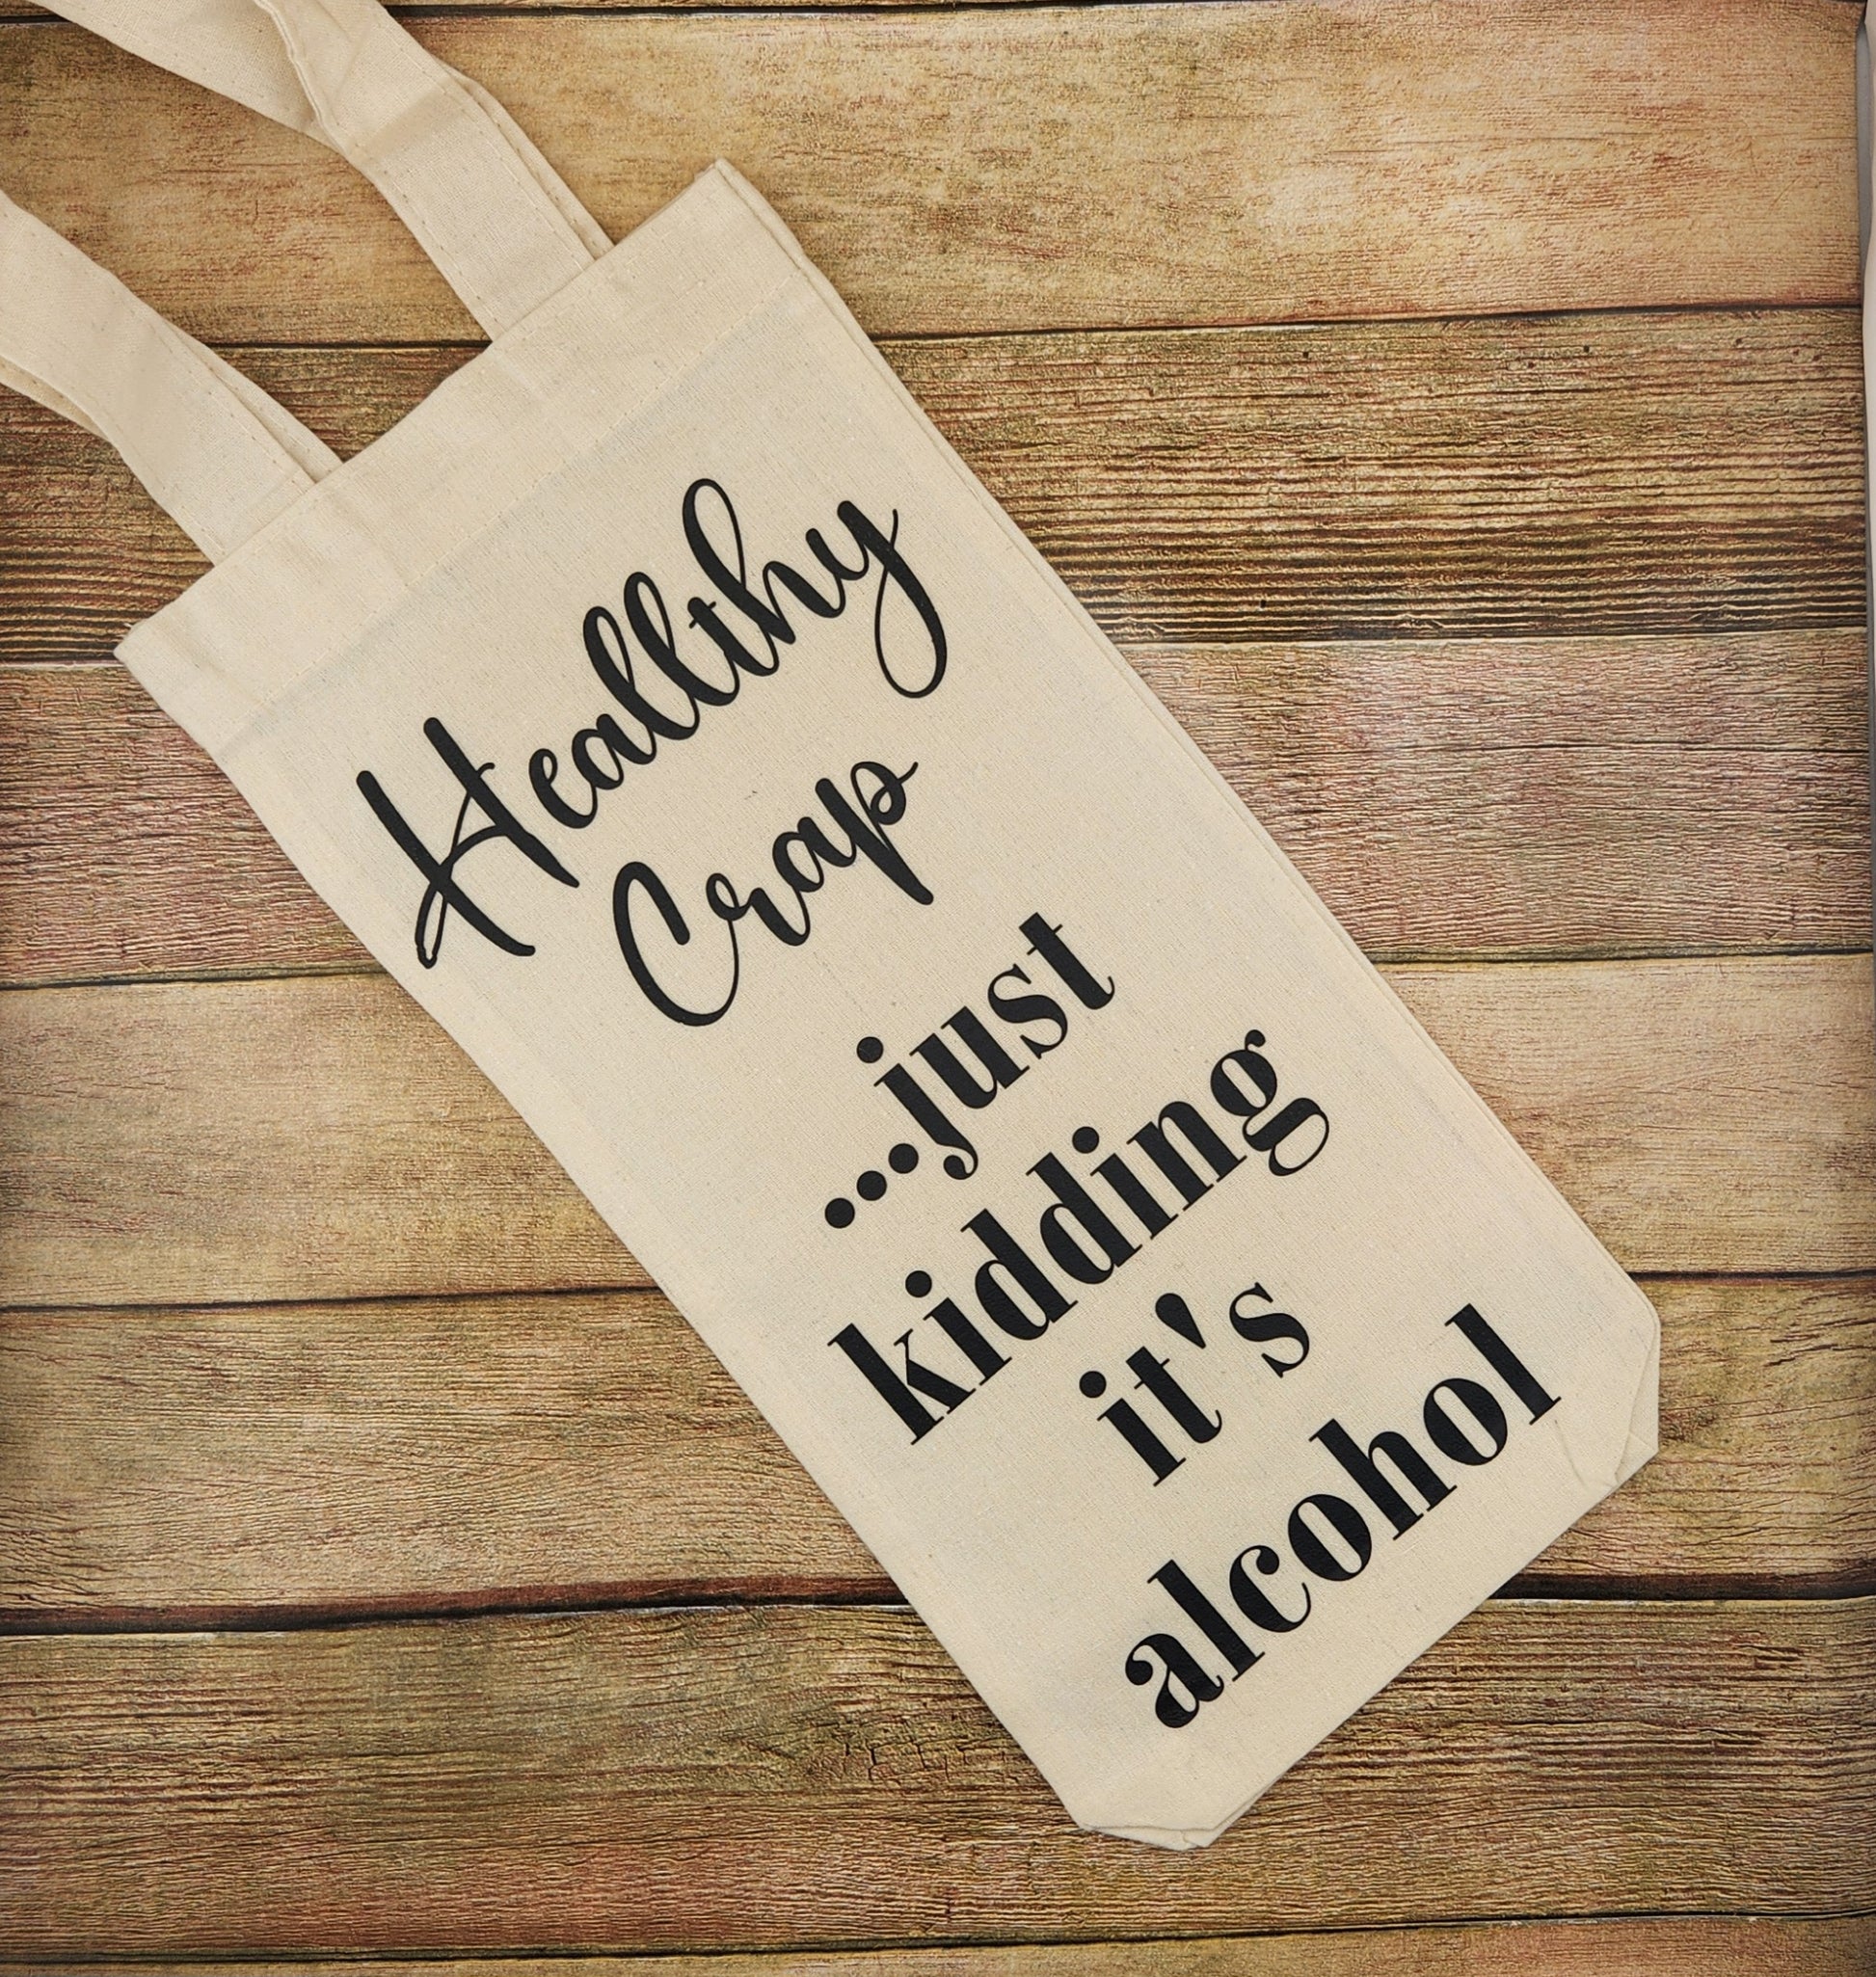 Heallthy
Crap
...just
kidding
it's
alcohol